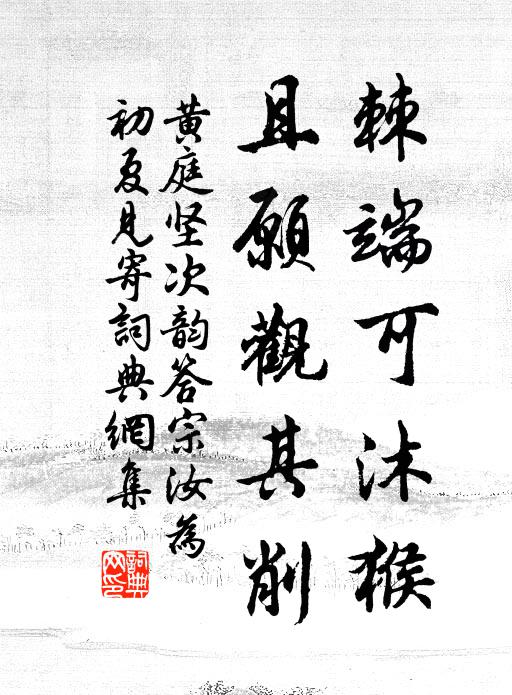 棘端可沐猴
且願觀其削
黄庭坚次韵答宗汝為
初夏見寄詞典網集
詞典
网印